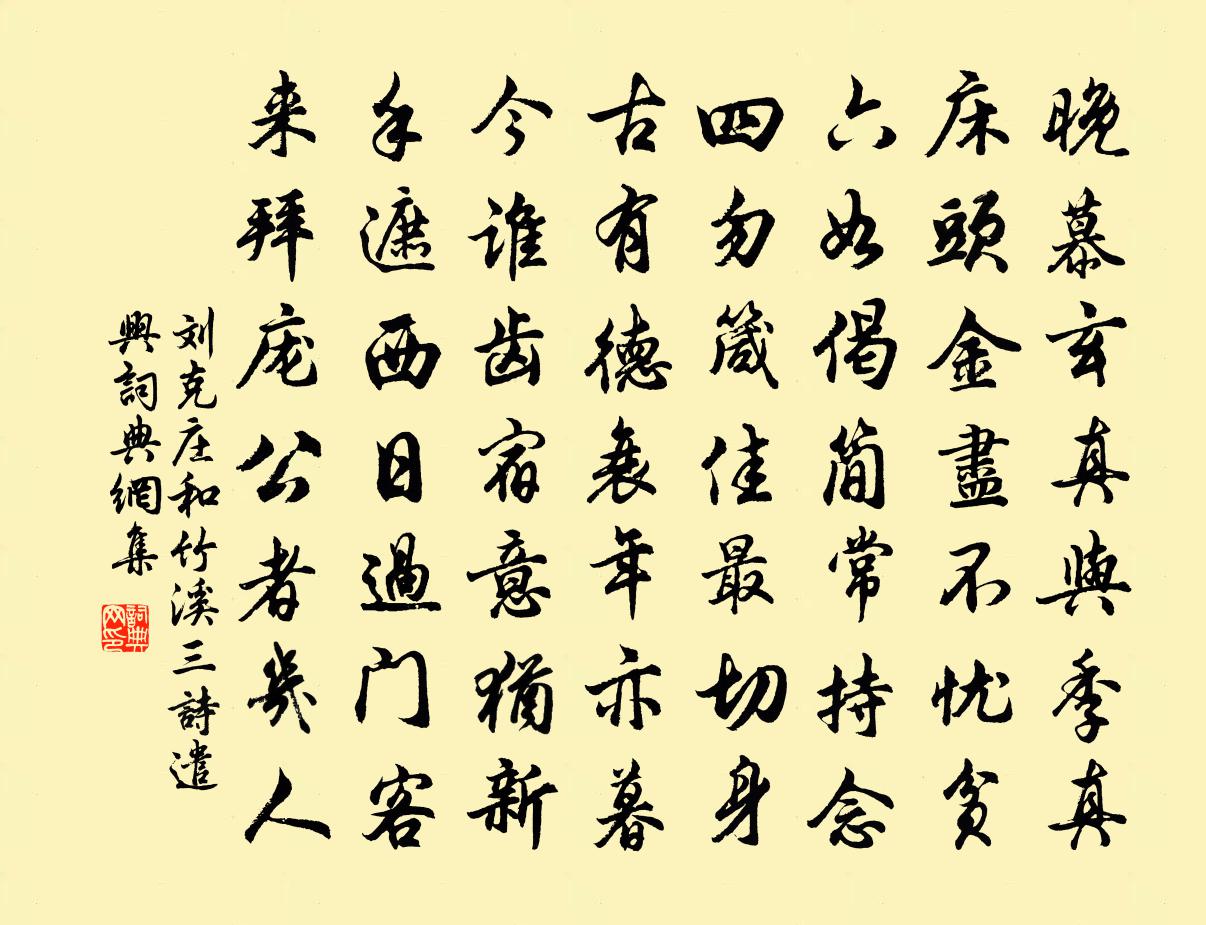 晚慕玄真與季真
床頭金盡不忧貧
六如偈简常持念
四勿箴佳最切身
古有德衰年亦暮
今谁齿宿意猶新
手遮西日過门客
来拜庞公者幾人
刘克庄和竹溪三詩遣
興詞典網集
詞典
网印